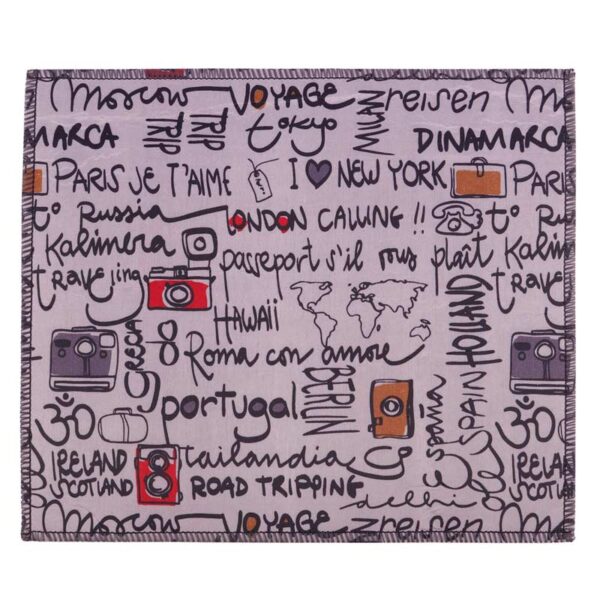 Moscow VOYAGE MIAMI reisen Mo
MARCA TRIP TRIP tokyo DINAMARCA
PARIS JE T'AIME I ♥ NEW YORK PARIS
to Russia LONDON CALLING !! to Russi
Kalimera passeport s'il vous plaît Kalim
travejing HOLLAND trave
HAWAII
GRECIA Roma con amore
portugal BERLIN España SPAIN
ॐ ॐ
IRELAND tailandia IRELAND
SCOTLAND ROAD TRIPPING SCOTLAN
delhi
Moscow VOYAGE reisen